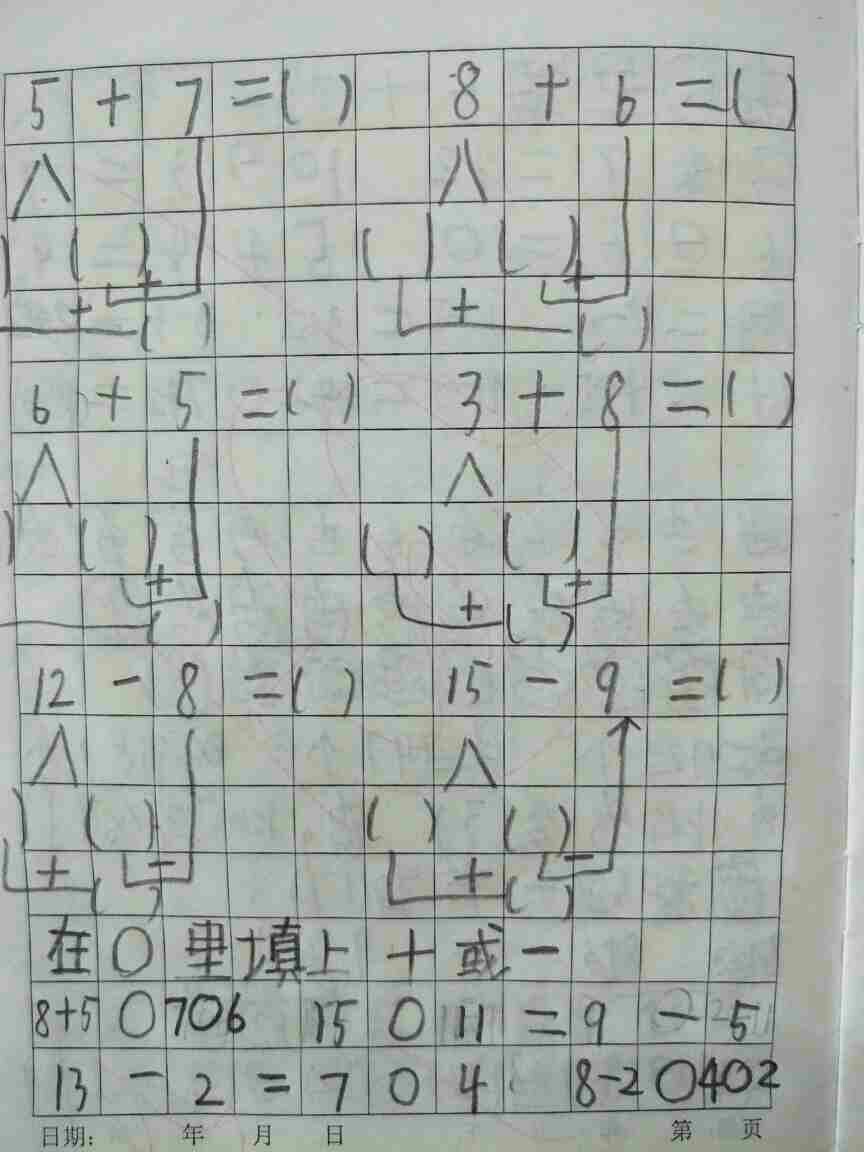 5 + 7 = ( ) 8 + 6 = ( )
( ) ( )
+ +
+ ( ) + ( )
6 + 5 = ( ) 3 + 8 = ( )
) ( ) ( ) ( )
+ +
( ) + ( )
12 - 8 = ( ) 15 - 9 = ( )
) ( ) ( ) ( )
+ - + -
( ) ( )
在○里填上+或-
8+5 ○ 7○6 15 ○ 11 = 9 - 5
13 - 2 = 7 ○ 4 8-2 ○ 4○2
日期： 年 月 日 第 页